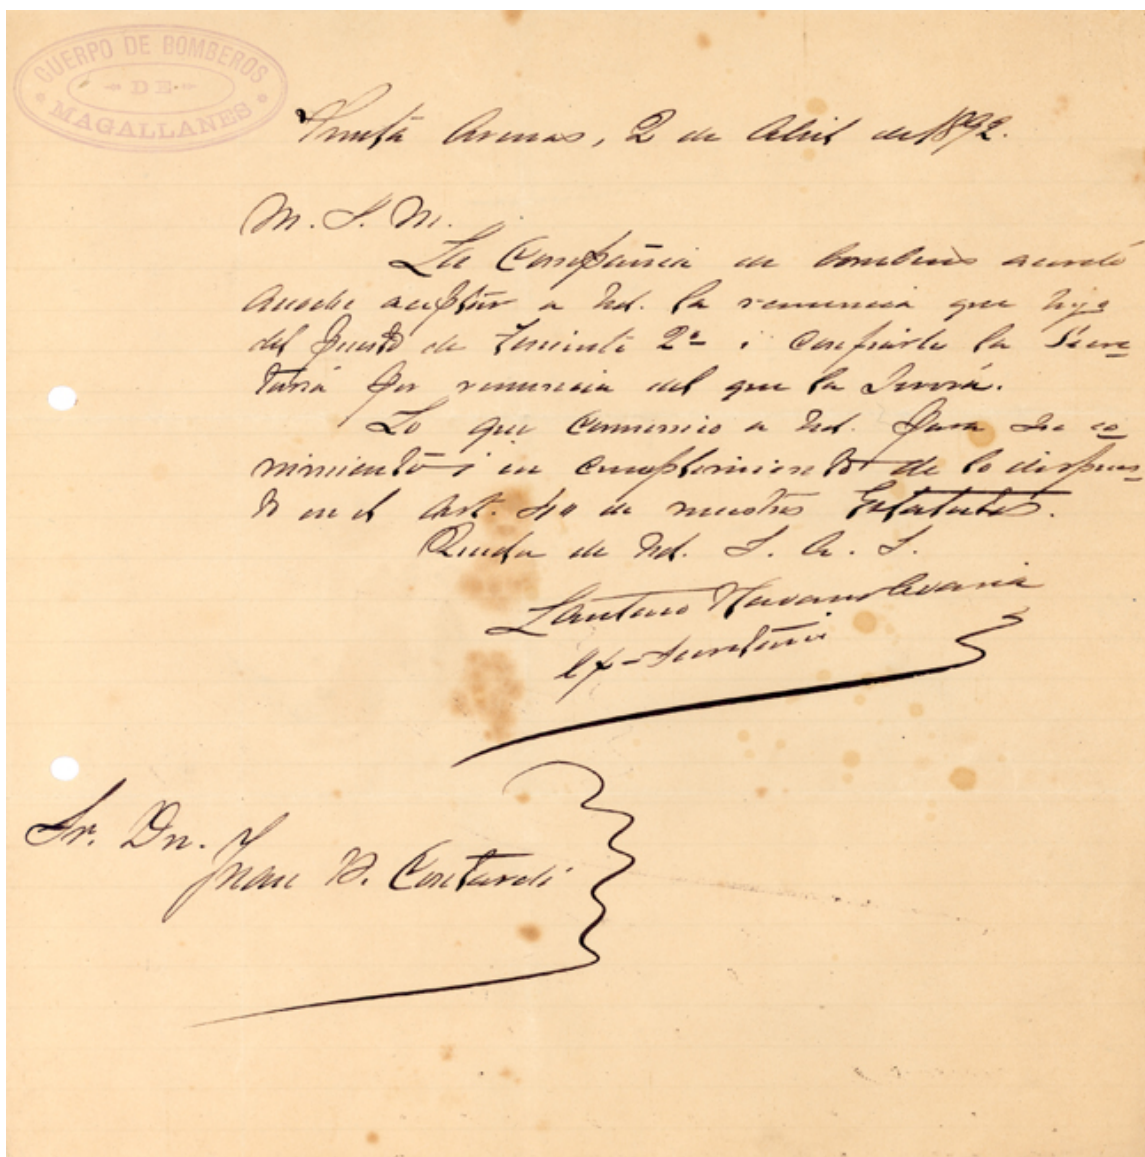 CUERPO DE BOMBEROS
DE
MAGALLANES
Punta Arenas, 2 de Abril de 1892.
M. S. M.
La Compañia de bomberos acordó
anoche aceptar a Ud. la renuncia que hizo
del puesto de Teniente 2º i confiarle la Secre-
taria por renuncia del que la servia.
Lo que comunico a Ud. para su co-
nimiento i en cumplimiento de lo dispues-
to en el Art. de nuestros Estatutos.
Queda de Ud. S. A. S.
Lautaro Navarro Avaria
ex-Secretario
Sr. Dn.
Juan B. Contardi